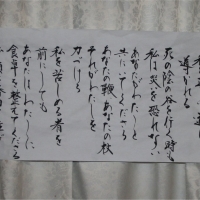 導かれる
死の陰の谷を行く時も
私は災いを恐れない
あなたがわたしと
共にいてくださる
あなたの鞭あなたの杖
それがわたしを
力づける
私を苦しめる者を
前にしても
あなたはわたしに
食卓を整えてくださる